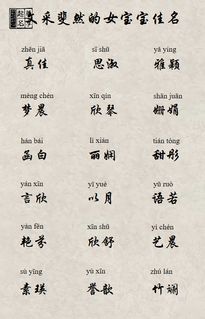 文采斐然的女宝宝佳名
zhēn jiā sī shū yǎ yǐng
真佳 思淑 雅颖
mèng chén xīn qín shān juān
梦晨 欣琴 姗娟
hán bái lì xián tián tóng
函白 丽娴 甜彤
yán xīn yǐ yuè yǔ ruò
言欣 以月 语若
yàn fēn xīn shū yì chén
艳芬 欣舒 艺晨
sù yīng yù xīn zhú lán
素瑛 誉歆 竹斓